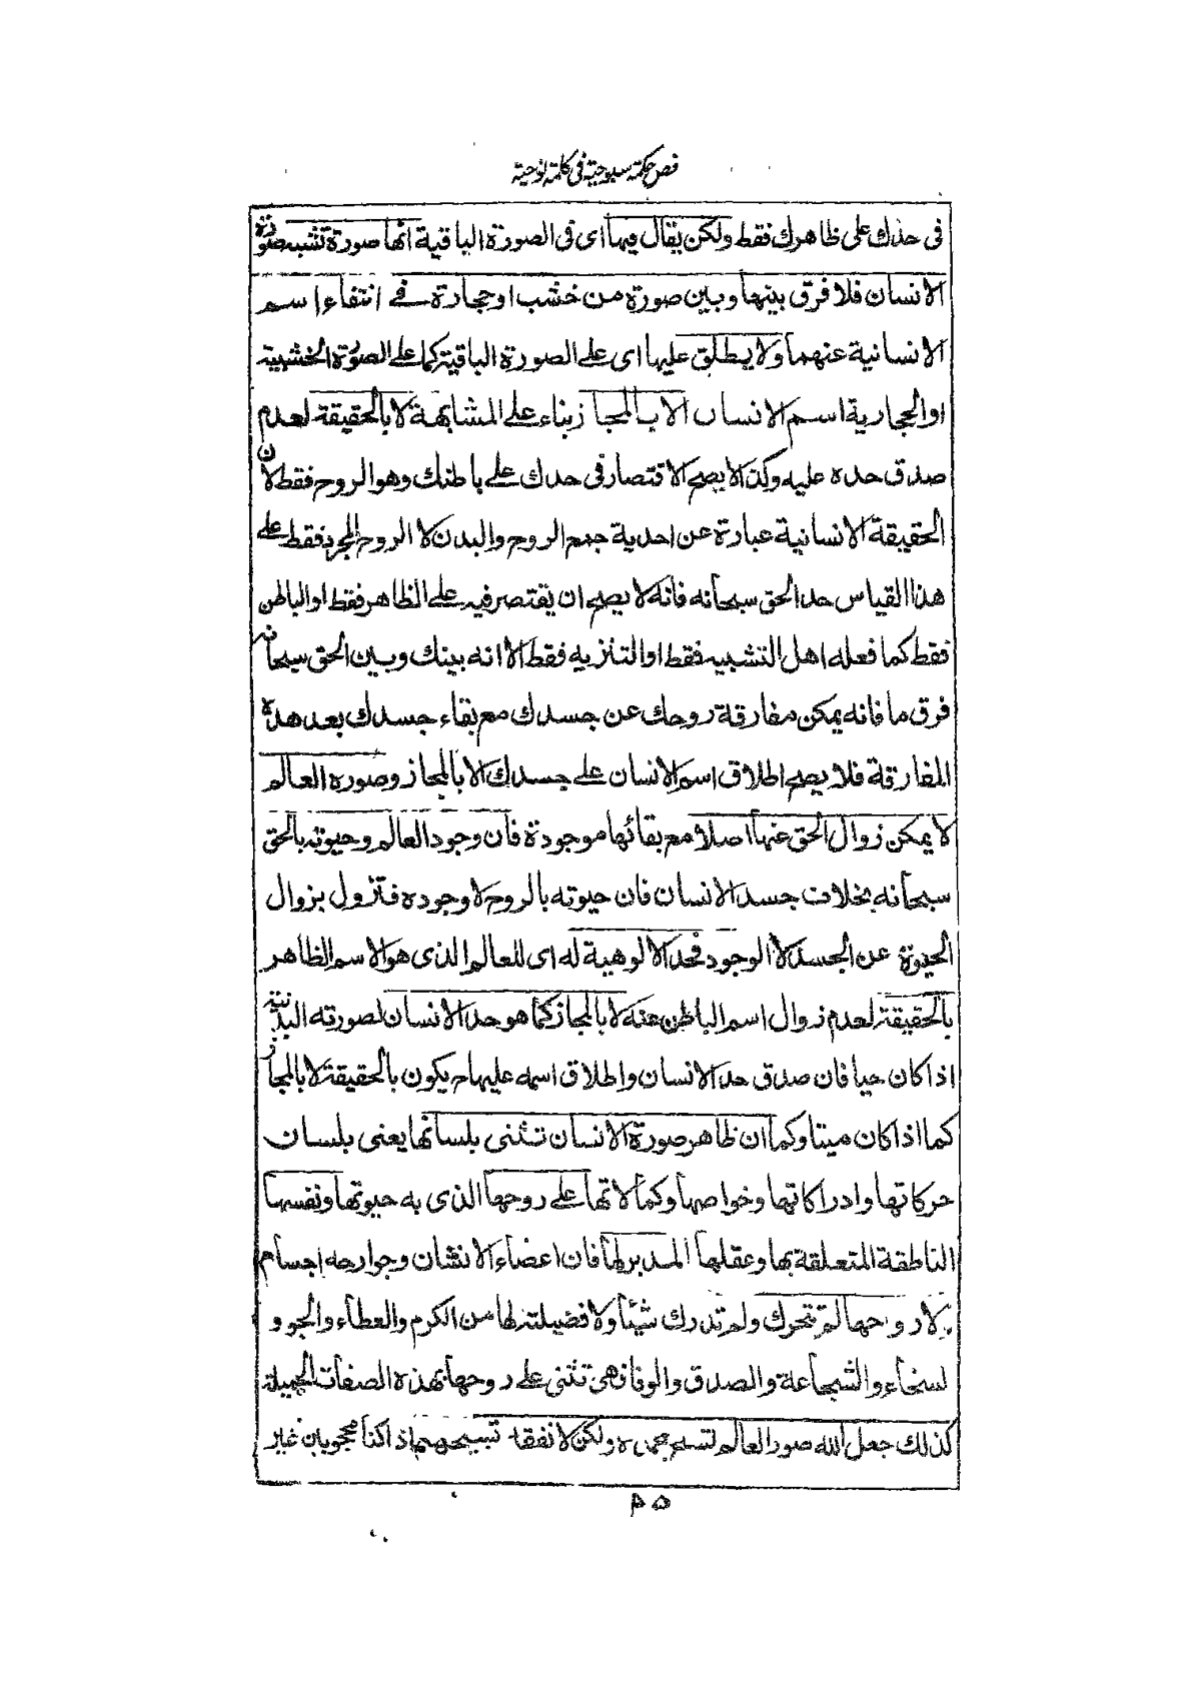 فص حكمة سبوحية فى كلمة نوحية
فى حدك على ظاهرك فقط ولكن يقال فيها اى فى الصورة الباقية انها صورة تشبه صورة
الانسان فلا فرق بينها وبين صورة من خشب او حجارة فے انتفاء اسم
الانسانية عنهما ولا يطلق عليها اى على الصورة الباقية كما على الصورة الخشبية
او الحجارية اسم الانسان الا بالمجاز بناء على المشابهة لا بالحقيقة لعدم
صدق حده عليه وكذا لا يصح الاقتصار فى حدك على باطنك وهو الروح فقط لان
الحقيقة الانسانية عبارة عن احدية جمع الروح والبدن لا الروح المجرد فقط على
هذا القياس حد الحق سبحانه فانه لا يصح ان يقتصر فيه على الظاهر فقط او الباطن
فقط كما فعله اهل التشبيه فقط او التنزيه فقط الا انه بينك وبين الحق سبحانه
فرق ما فانه يمكن مفارقة روحك عن جسدك مع بقاء جسدك بعد هذه
المفارقة فلا يصح اطلاق اسم الانسان على جسدك الا بالمجاز وصورة العالم
لا يمكن زوال الحق عنها اصلا مع بقائها موجودة فان وجود العالم وحيوته بالحق
سبحانه بخلاف جسد الانسان فان حيوته بالروح لا وجوده فتزول بزوال
الحيوة عن الجسد لا الوجود فحد الالوهية له اى للعالم الذى هو الاسم الظاهر
بالحقيقة لعدم زوال اسم الباطن عنه لا بالمجاز كما هو حد الانسان لصورته البدنية
اذا كان حيا فان صدق حد الانسان واطلاق اسمه عليها ح يكون بالحقيقة لا بالمجاز
كما اذا كان ميتا وكما ان ظاهر صورة الانسان تثنى بلسانها يعنى بلسان
حركاتها وادراكاتها وخواصها وكمالاتها على روحها الذى به حيوتها ونفسها
الناطقة المتعلقة بها وعقلها المدبر لها فان اعضاء الانسان وجوارحه اجسام
لا روحها لم تتحرك ولم تدرك شيئا ولا فضيلة لها من الكرم والعطاء والجود و
لسخاء والشجاعة والصدق والوفا فهى تثنى على روحها بهذه الصفات الجميلة
كذلك جعل الله صور العالم تسبح بحمده ولكن لا نفقه تسبيحهم اذ اكنا محجوبان غير